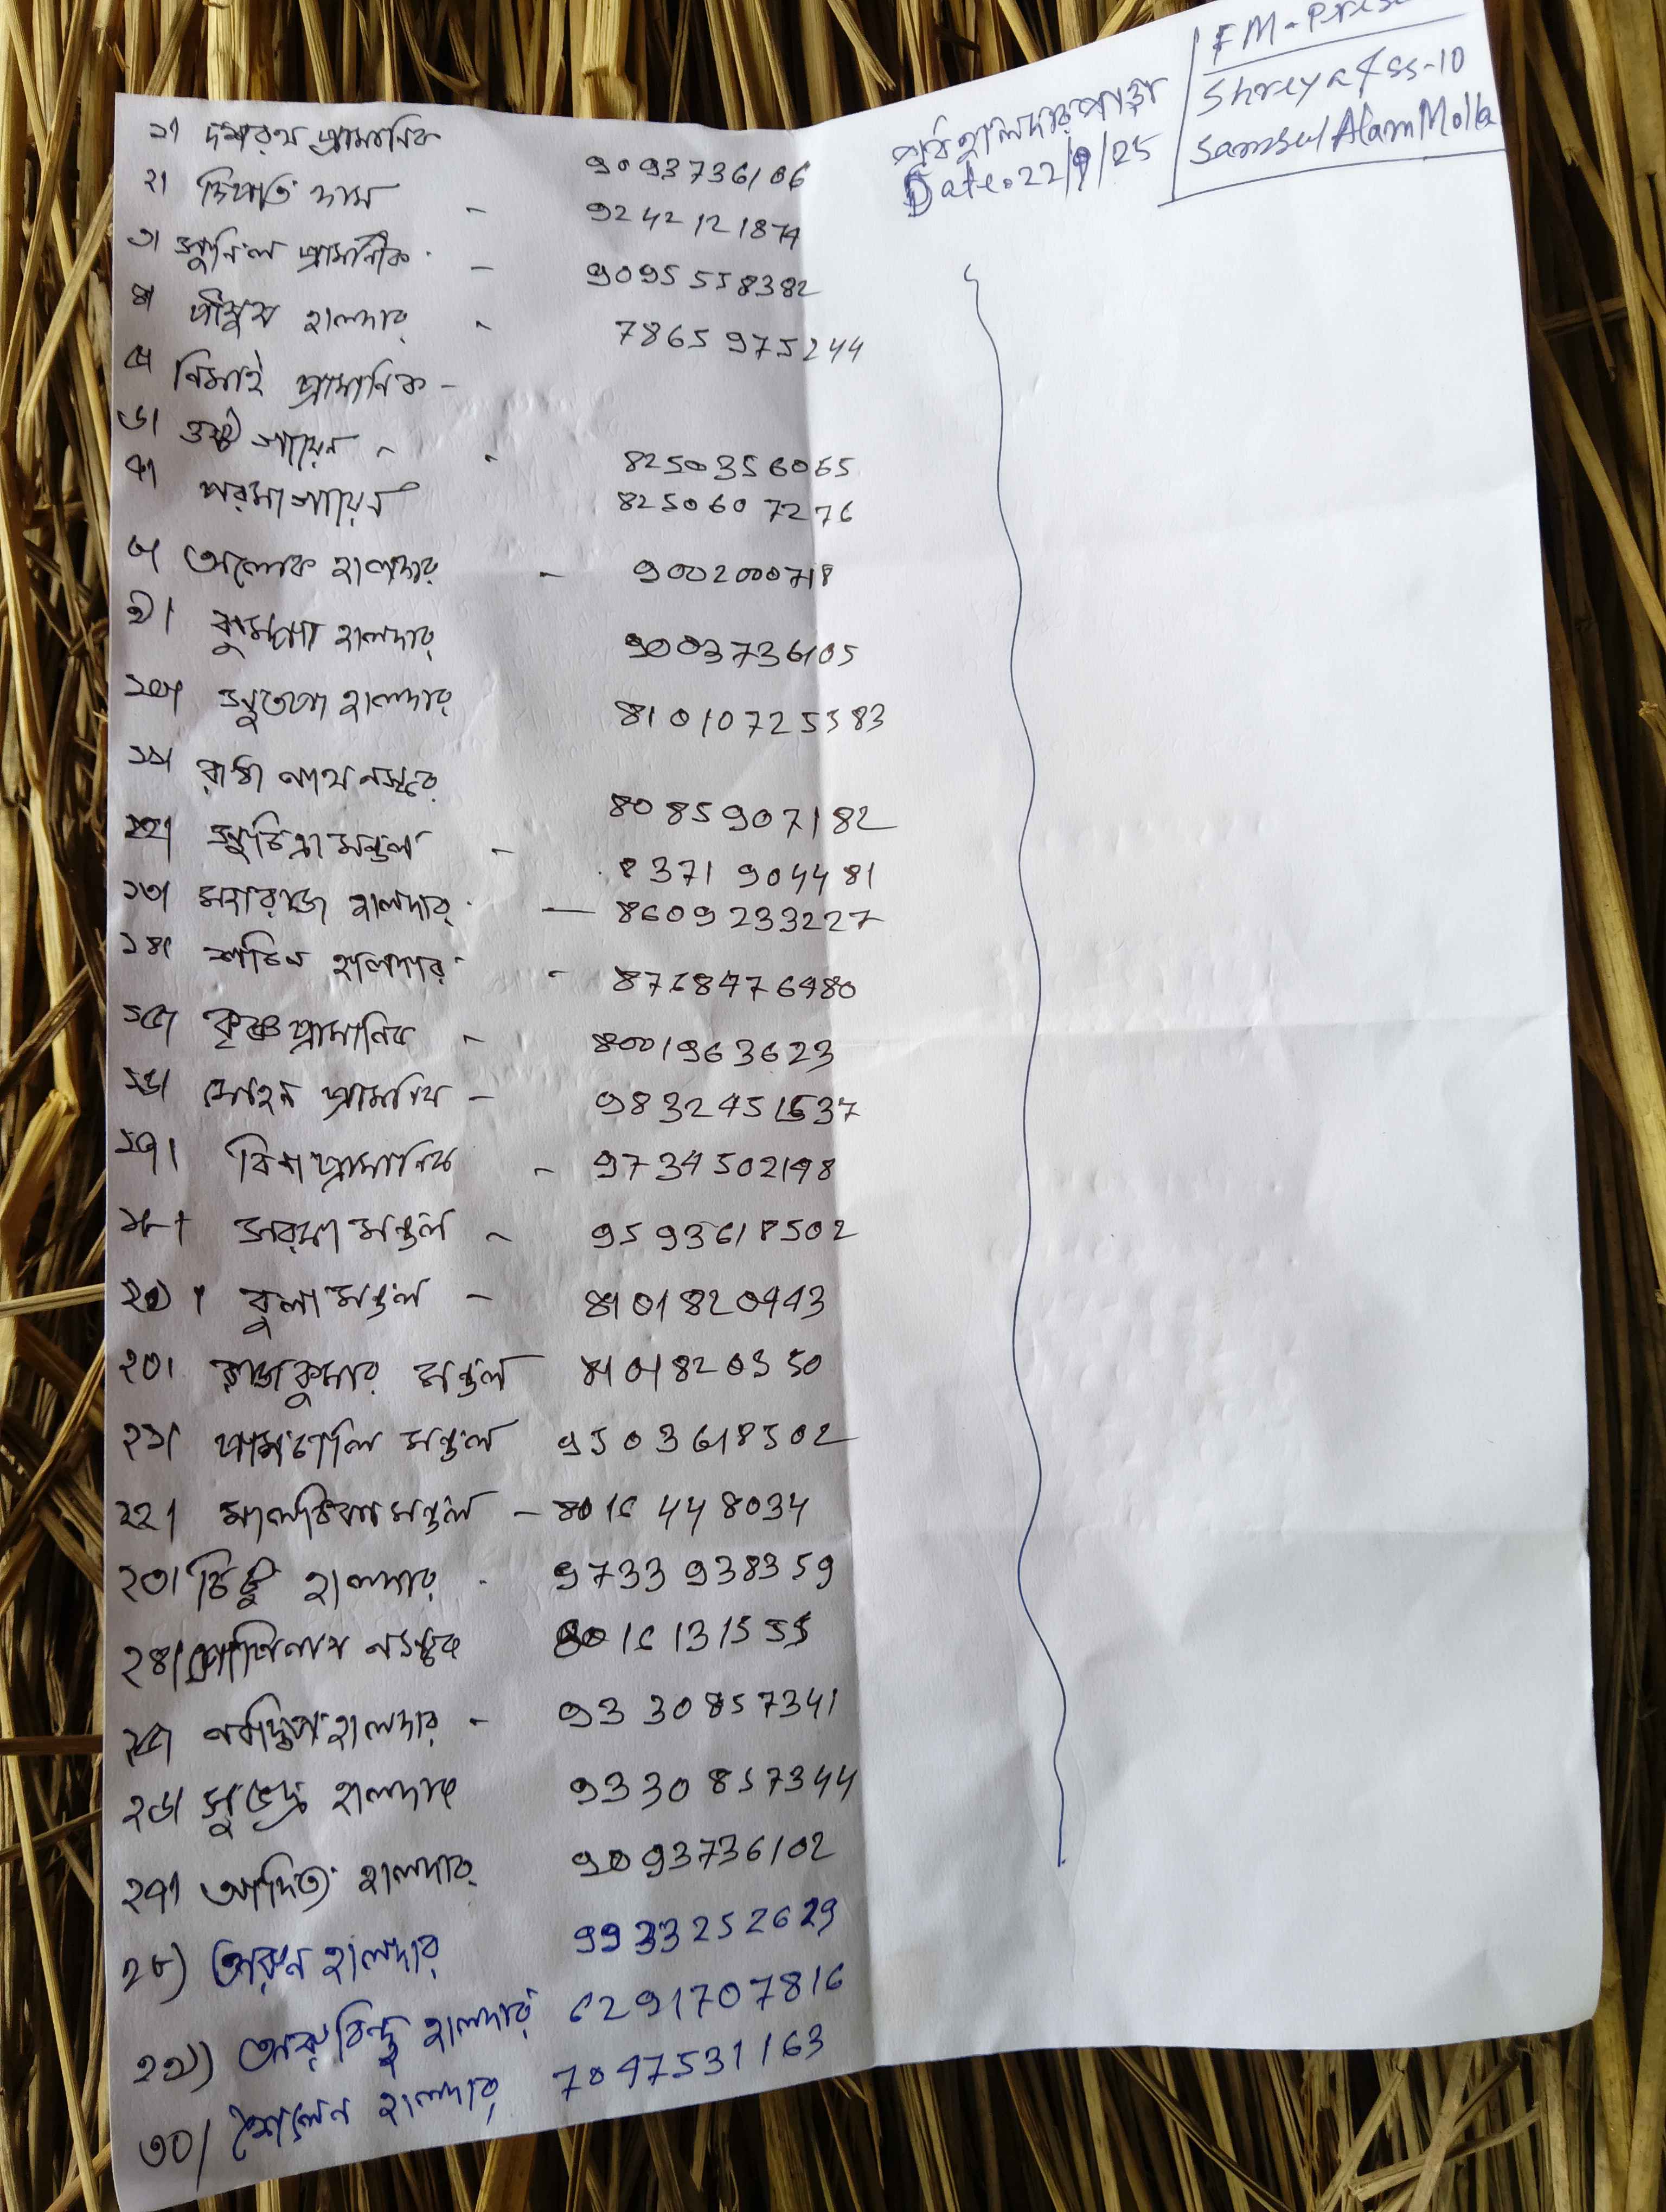 ১। দশরথ প্রামানিক 9093736106
২। দাস - 9242121874
৩। সুনিল প্রামানীক - 9095558382
৪। পীযুষ হালদার - 7865975244
৫। নিমাই প্রামানিক -
৬। গায়েন - 8250356065
৭। পরমা গায়েন 8250607276
৮। অলোক হালদার - 9002000718
৯। হালদার 9003736105
১০। সুতপা হালদার 81010725583
১১। নাথ নস্কর 8085907182
১২। সুচিত্রা মন্ডল - 8371904481
১৩। মহারাজ হালদার - 8609233227
১৪। শচিন হালদার - 8768476480
১৫। কৃষ্ণ প্রামানিক - 8001963623
১৬। মোহন প্রামানিক - 9832451637
১৭। প্রামানিক - 9734502198
১৮। সরমা মন্ডল - 9593618502
মন্ডল - 8101820443
২০। রাজকুমার মন্ডল 8101820350
২১। মন্ডল 9503618502
২২। মন্ডল - 8016448034
২৩। হালদার - 9733938359
২৪। গোপিনাথ নস্কর 8016131555
২৫। নবদ্বিপ হালদার - 9330857341
২৬। সুভেন্দু হালদার 9330857344
২৭। আদিত্য হালদার 9093736102
২৮) অরুন হালদার 9933252629
২৯) অরবিন্দু হালদার 6291707816
৩০/ শৈলেন হালদার 7047531163
হালদার পাড়া
Date: 22/9/25
FM-
Shreya ss-10
Samsul Alam Molla